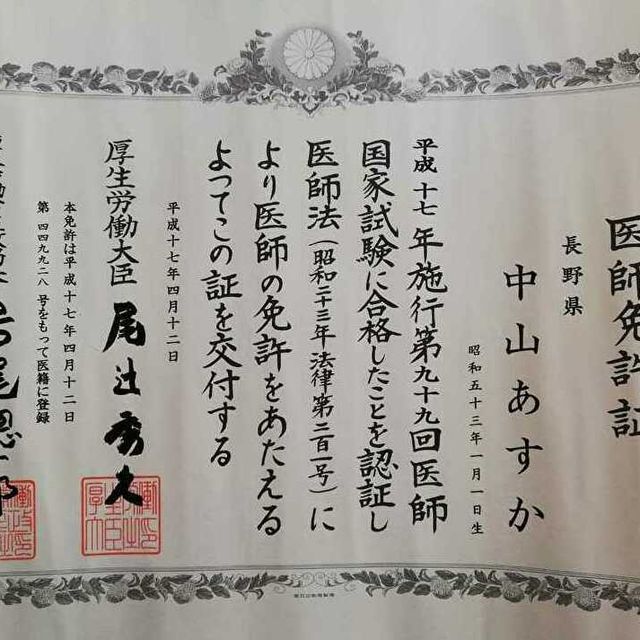 医師免許証
長野県
中山あすか
昭和五十三年一月一日生
平成十七年施行第九十九回医師
国家試験に合格したことを認証し
医師法（昭和二十三年法律第二百一号）に
より医師の免許をあたえる
よってこの証を交付する
平成十七年四月十二日
厚生労働大臣 尾辻秀久
本免許は平成十七年四月十二日
第四四九九二八号をもって医籍に登録